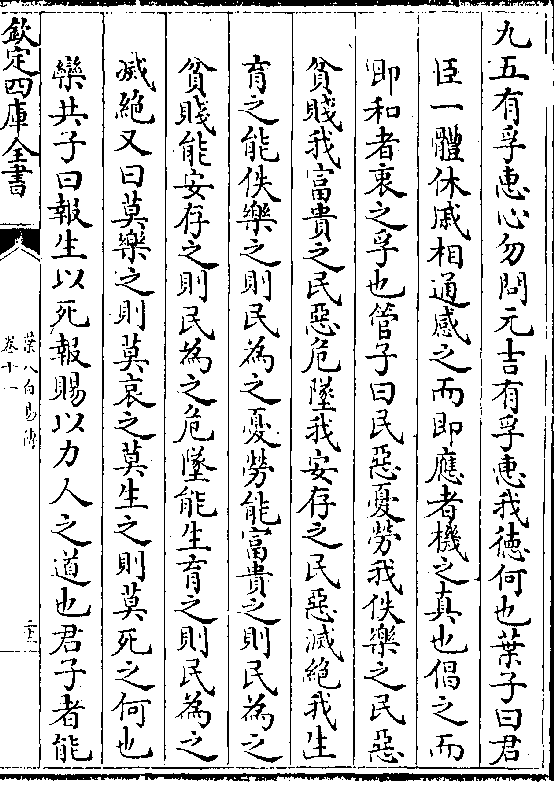 九五有孚惠心勿問元吉有孚惠我徳何也葉子曰君
臣一體休戚相通感之而即應者機之真也倡之而
即和者衷之孚也管子曰民惡憂勞我佚樂之民惡
貧賤我富貴之民惡危墜我安存之民惡滅絶我生
育之能佚樂之則民為之憂勞能富貴之則民為之
貧賤能安存之則民為之危墜能生育之則民為之
滅絶又曰莫樂之則莫哀之莫生之則莫死之何也
欒共子曰報生以死報賜以力人之道也君子者能
欽定四庫全書
葉八白易傳
卷十一